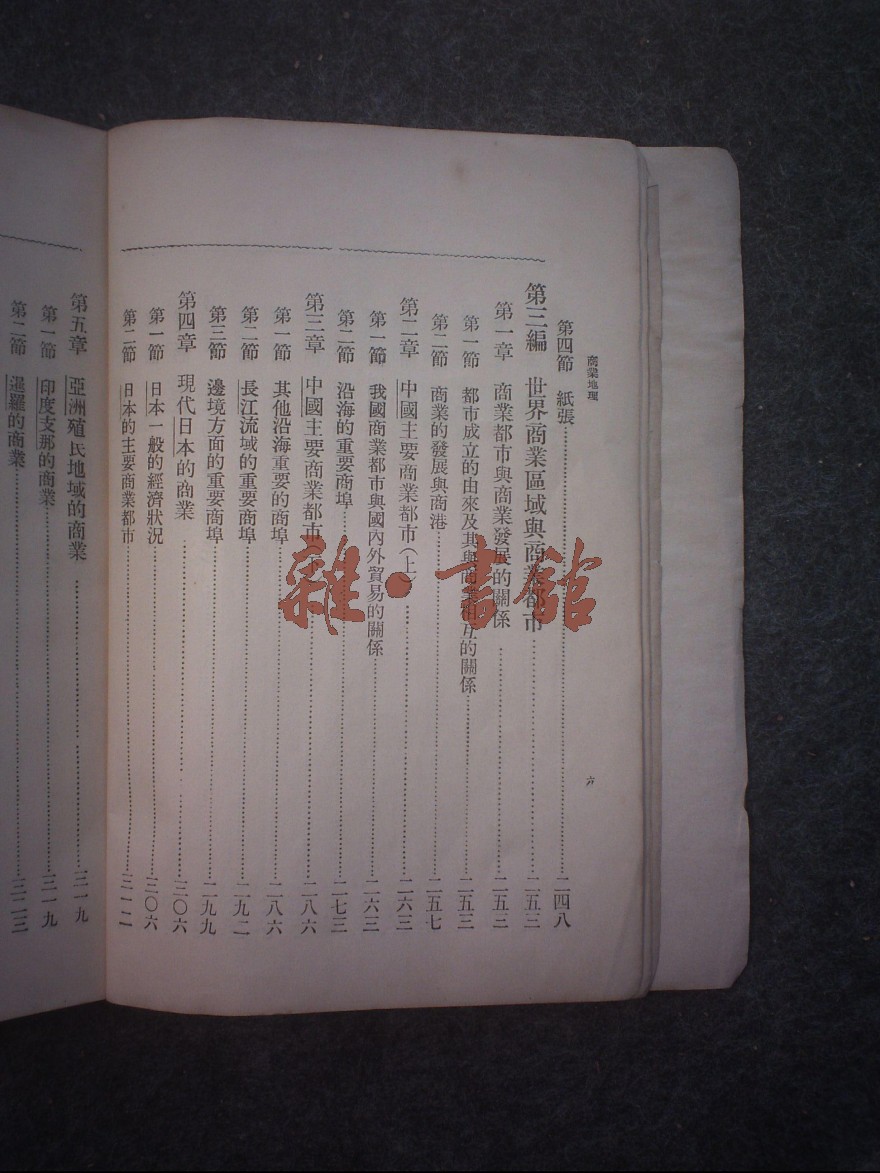 商業地理
六
第四節 紙張 二四八
第三編 世界商業區域與商業都市 二五三
第一章 商業都市與商業發展的關係 二五三
第一節 都市成立的由來及其與商業相互的關係 二五三
第二節 商業的發展與商港 二五七
第二章 中國主要商業都市(上) 二六三
第一節 我國商業都市與國內外貿易的關係 二六三
第二節 沿海的重要商埠 二七三
第三章 中國主要商業都市(下) 二八六
第一節 其他沿海重要的商埠 二八六
第二節 長江流域的重要商埠 二九二
第三節 邊境方面的重要商埠 二九九
第四章 現代日本的商業 三〇六
第一節 日本一般的經濟狀況 三〇六
第二節 日本的主要商業都市 三一二
第五章 亞洲殖民地域的商業 三一九
第一節 印度支那的商業 三一九
第二節 暹羅的商業 三二三
雜·書館